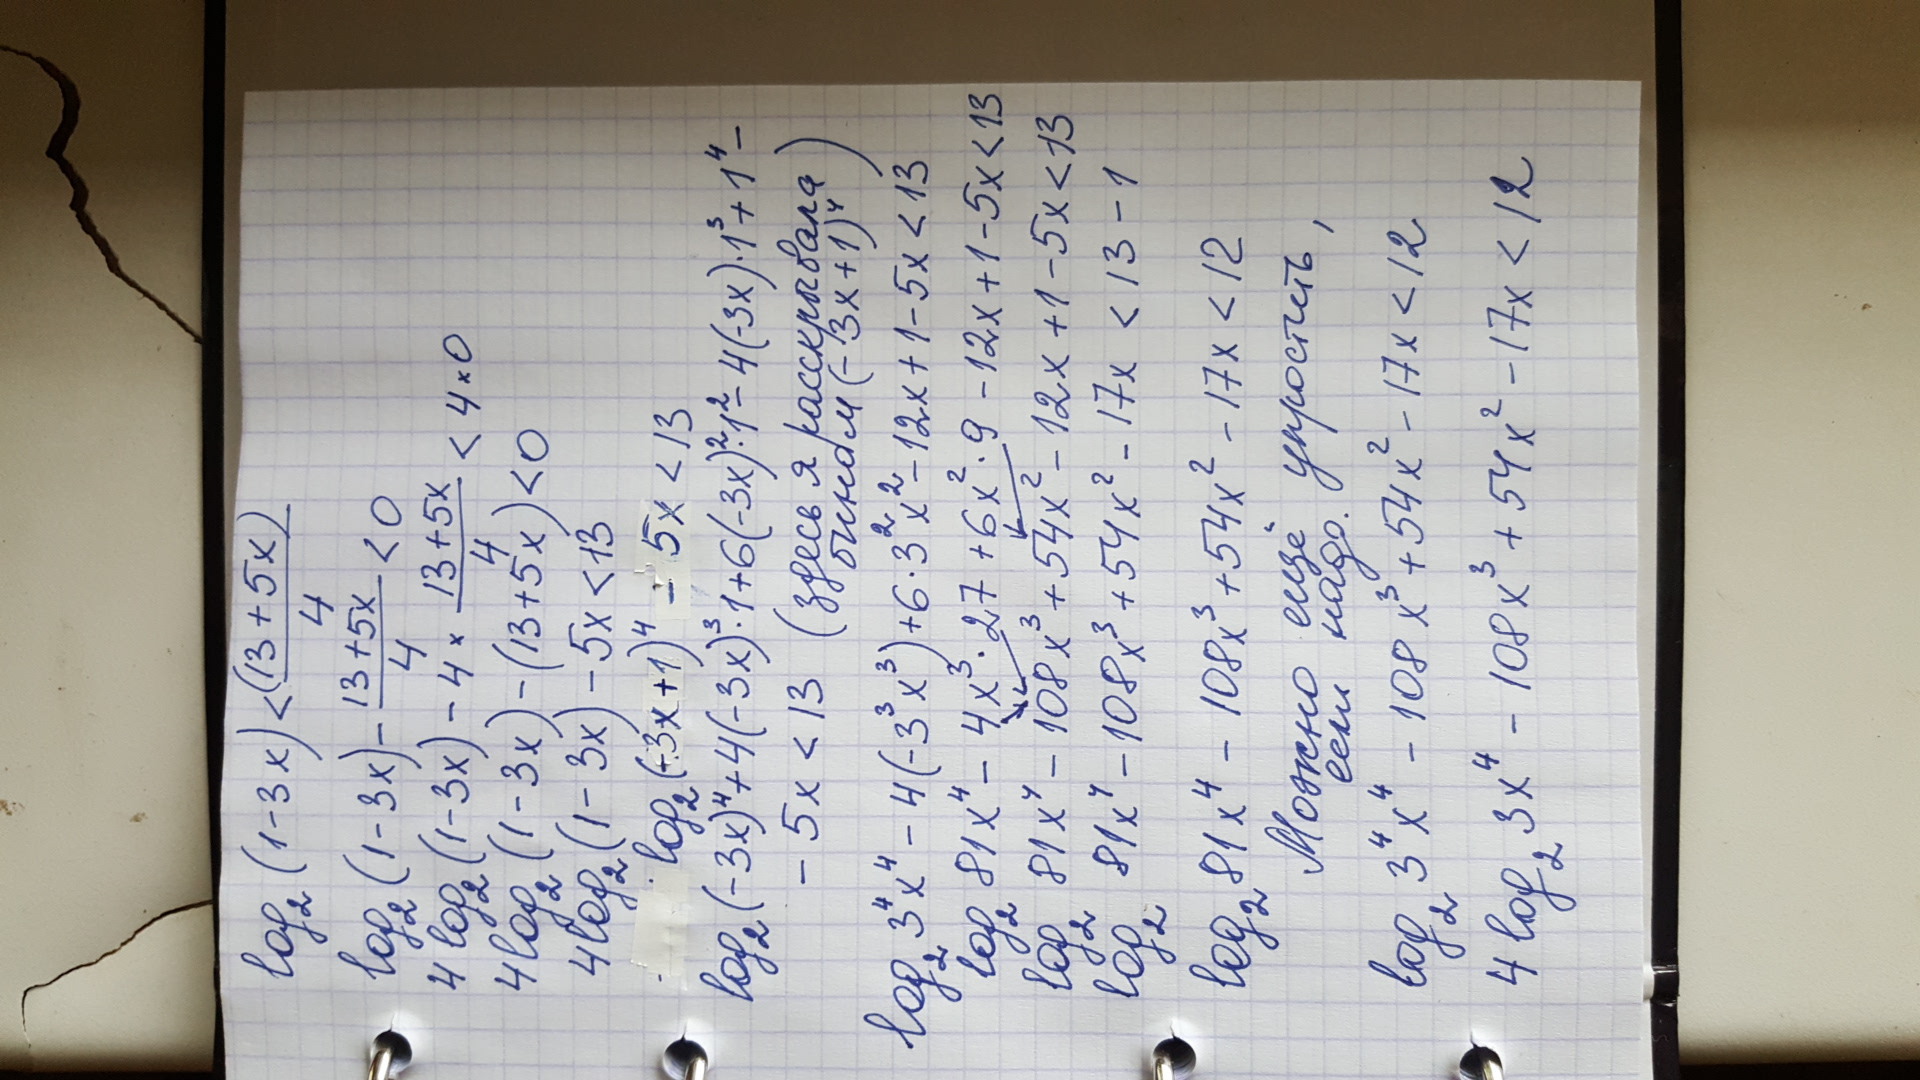 log₂(1-3x) < (13+5x)/4
log₂(1-3x) - (13+5x)/4 < 0
4log₂(1-3x) - 4 × (13+5x)/4 < 4×0
4log₂(1-3x) - (13+5x) < 0
4log₂(1-3x) - 5x < 13
log₂(-3x+1)⁴ - 5x < 13
log₂(-3x)⁴+4(-3x)³·1+6(-3x)²·1²-4(-3x)·1³+1⁴-
-5x < 13 (здесь я расскрывала
бином (-3x+1)⁴)
log₂3⁴x⁴-4(-3³x³)+6·3²x²-12x+1-5x<13
log₂ 81x⁴-4x³·27+6x²·9-12x+1-5x<13
log₂ 81x⁴-108x³+54x²-12x+1-5x<13
log₂ 81x⁴-108x³+54x²-17x < 13-1
log₂81x⁴-108x³+54x²-17x<12
Можно ещё упростить,
если надо.
log₂3⁴x⁴-108x³+54x²-17x<12
4log₂3x⁴-108x³+54x²-17x<12